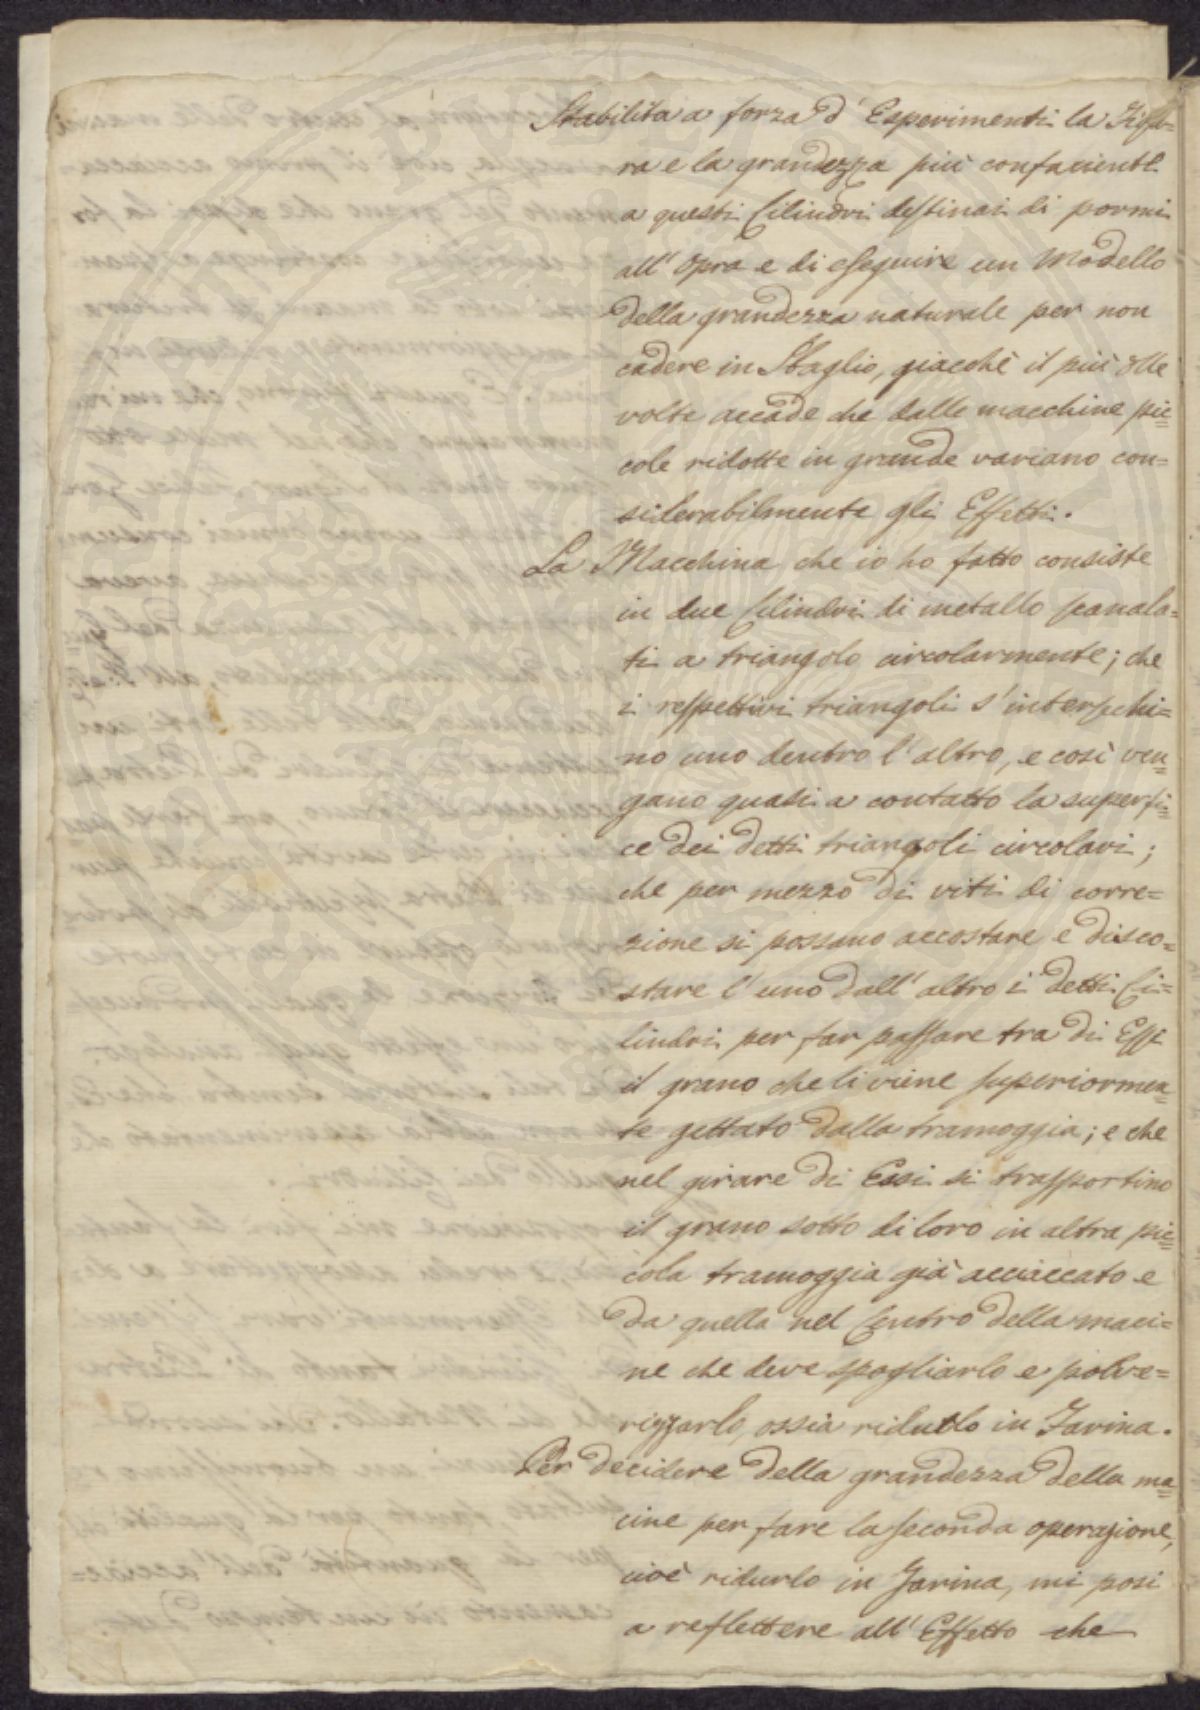 Stabilita a forza d' Esperimenti la Figu-
ra e la grandezza più confaciente
a questi Cilindri destinai di pormi
all' Opra e di eseguire un Modello
della grandezza naturale per non
cadere in Sbaglio, giacchè il più delle
volte accade che dalle macchine pic=
cole ridotte in grande variano con=
siderabilmente gli Effetti.
La Macchina che io ho fatto consiste
in due Cilindri di metallo scanala=
ti a triangolo circolarmente; che
i respettivi triangoli s' interschi=
no uno dentro l' altro, e così ven=
gano quasi a contatto la superfi=
ce dei detti triangoli circolari;
che per mezzo di viti di corre=
zione si possano accostare, e disco=
stare l' uno dall' altro i detti Ci=
lindri per far passare tra di Essi
il grano che li viene superiormen=
te gettato dalla tramoggia; e che
nel girare di Essi si trasportino
il grano sotto di loro in altra pic=
cola tramoggia già acciaccato e
da quella nel Centro della maci=
ne che deve spogliarlo e polve=
rizzarlo, ossia ridurlo in Farina.
Per decidere della grandezza della ma=
cine per fare la seconda operazione,
cioè ridurlo in Farina, mi posi
a reflettere all' Effetto che